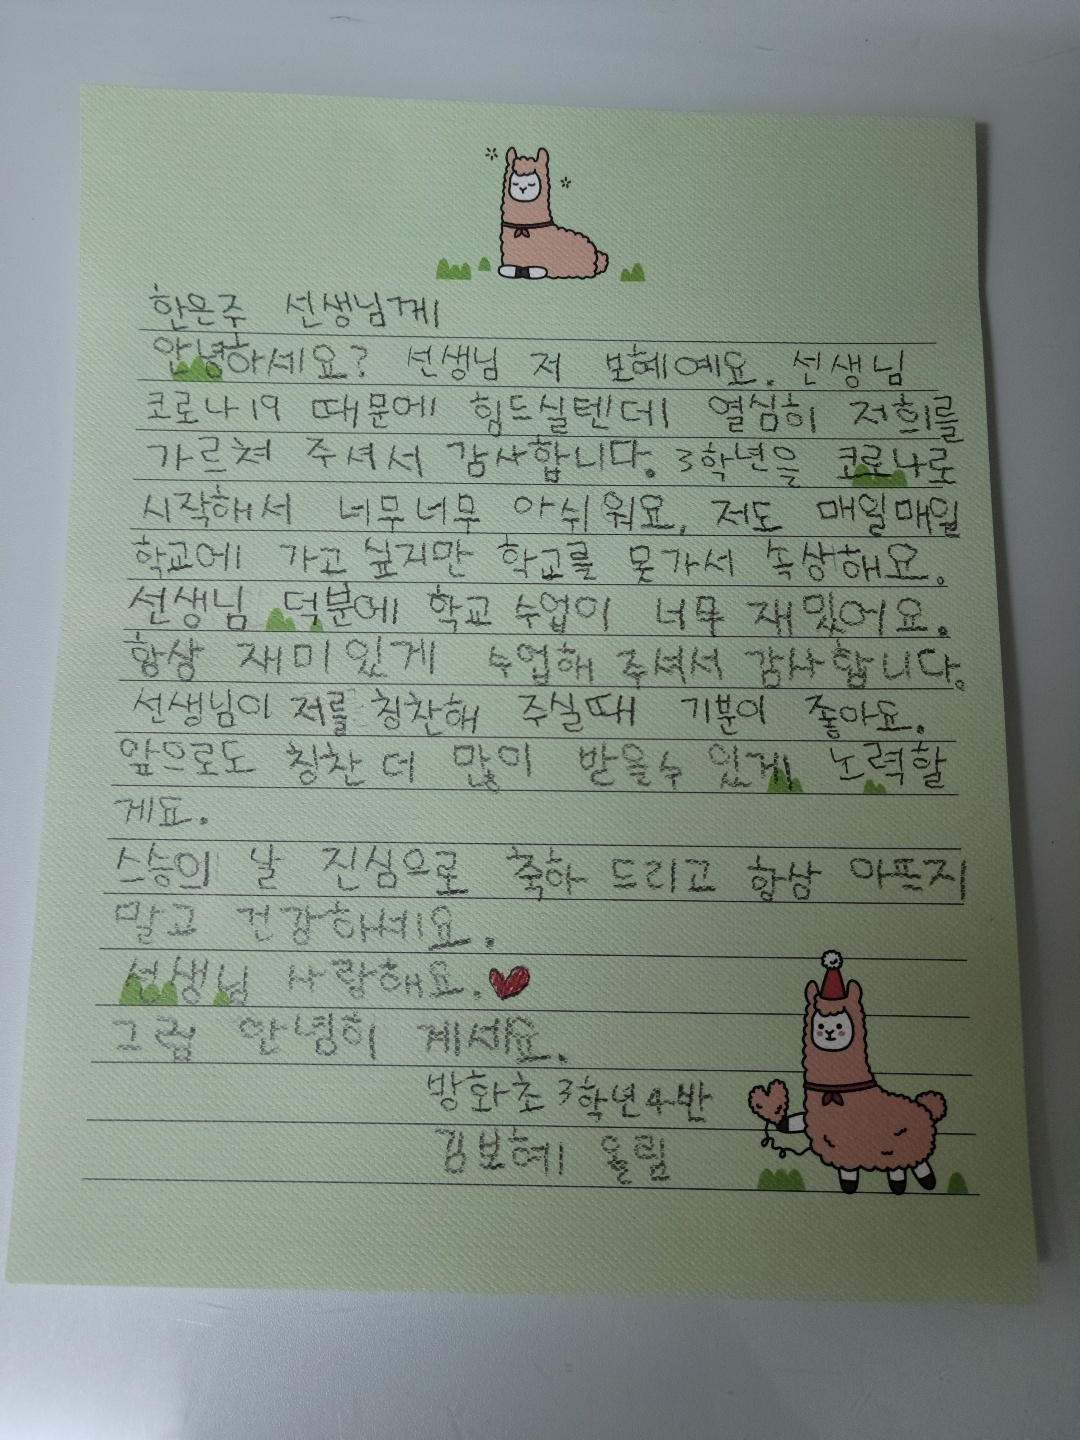 한은주 선생님께
안녕하세요? 선생님 저 보혜예요. 선생님
코로나19 때문에 힘드실텐데 열심히 저희를
가르쳐 주셔서 감사합니다. 3학년을 코로나로
시작해서 너무너무 아쉬워요, 저도 매일매일
학교에 가고 싶지만 학교를 못가서 속상해요.
선생님 덕분에 학교 수업이 너무 재밌어요.
항상 재미있게 수업해 주셔서 감사합니다.
선생님이 저를 칭찬해 주실때 기분이 좋아요.
앞으로도 칭찬 더 많이 받을수 있게 노력할
게요.
스승의 날 진심으로 축하 드리고 항상 아프지
말고 건강하세요.
선생님 사랑해요.
그럼 안녕히 계세요.
방화초 3학년 4반
김보혜 올림